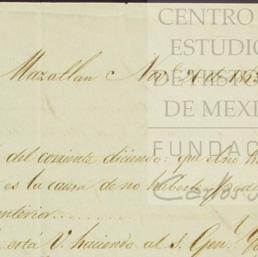 CENTRO
ESTUDIO
DE HISTOR
DE MEXI
FUNDAC
Carlos
Mazatlan
del corriente diciendo: que
es la causa de no haberle
anterior
está V. haciendo al S. Gen.